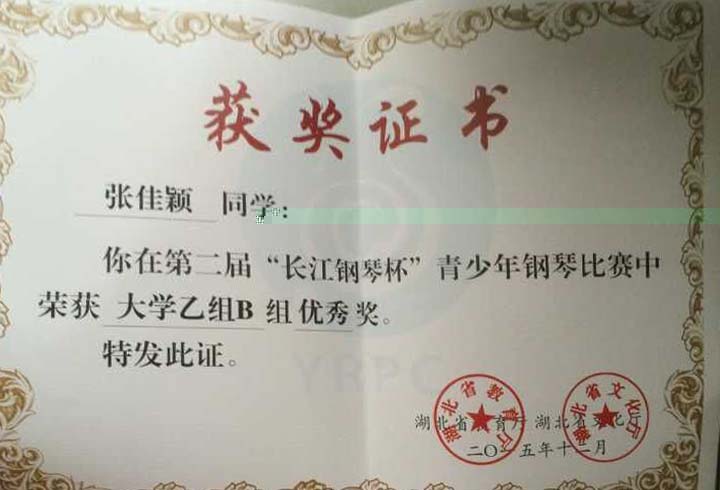 获奖证书
张佳颖 同学:
你在第二届“长江钢琴杯”青少年钢琴比赛中
荣获 大学乙组B 组优秀奖。
特发此证。
YRPC
湖北省教育厅 湖北省文化厅
湖北省教育厅
湖北省文化厅
二〇一五年十二月